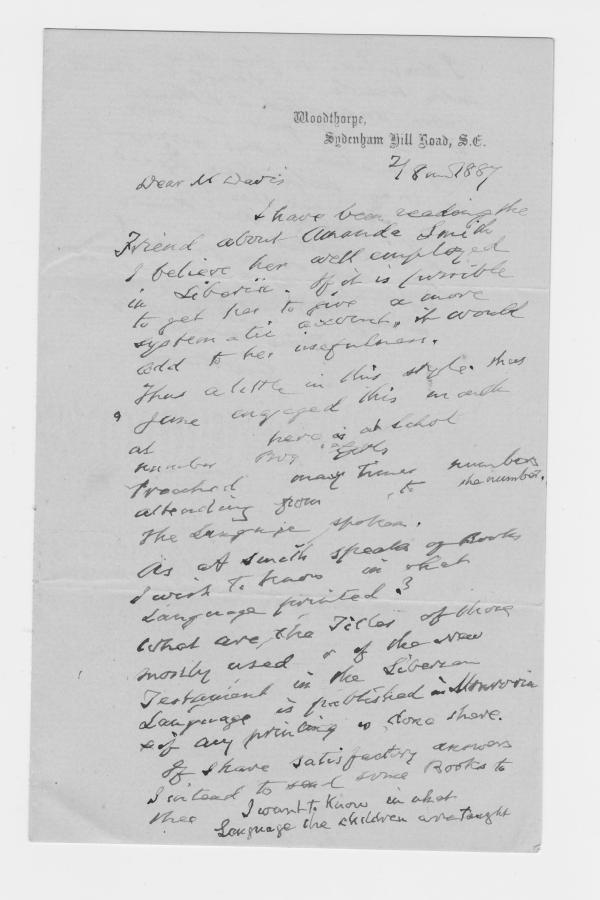 Woodthorpe,
Sydenham Hill Road, S.E.
1887
Dear M Davis
I have been reading the
Friend about Amanda Smith
I believe her well employed
in Liberia. If it is possible
to get her to give a more
systematic account, it would
add to her usefulness.
Thus a little in this style. thus
June engaged this month
at here is at School
number Boys Girls
Preached many times numbers
attending from to the number.
The Language spoken.
As A Smith speaks of Books
I wish to know in what
Language printed?
What are the Titles of those
mostly used & if the New
Testament in the Liberian
Language is published in Monrovia
& if any printing is done there.
If I have satisfactory answers
I intend to send some Books to
thee I want to know in what
Language the children are taught